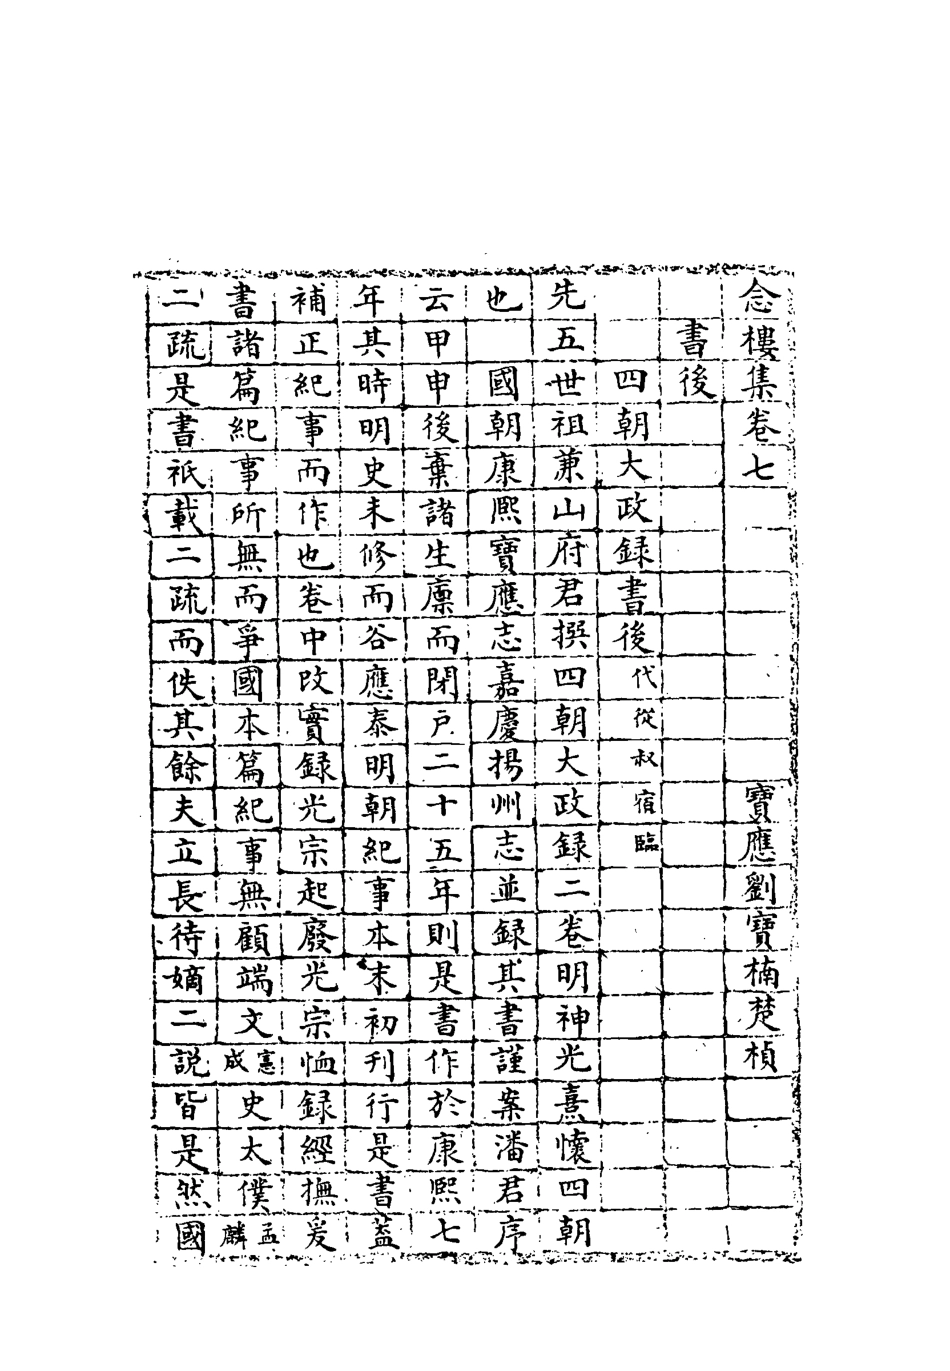 念樓集卷七　寶應劉寶楠楚楨
書後
四朝大政録書後代從叔宿臨
先五世祖蒹山府君撰四朝大政録二卷明神光熹懷四朝
也　國朝康熙寶應志嘉慶揚州志並録其書謹案潘君序
云甲申後棄諸生廩而閉户二十五年則是書作於康熙七
年其時明史未修而谷應泰明朝紀事本末初刊行是書蓋
補正紀事而作也卷中改實録光宗起廢光宗恤録經撫爰
書諸篇紀事所無而爭國本篇紀事無顧端文憲成史太僕孟麟
二疏是書祇載二疏而佚其餘夫立長待嫡二説皆是然國